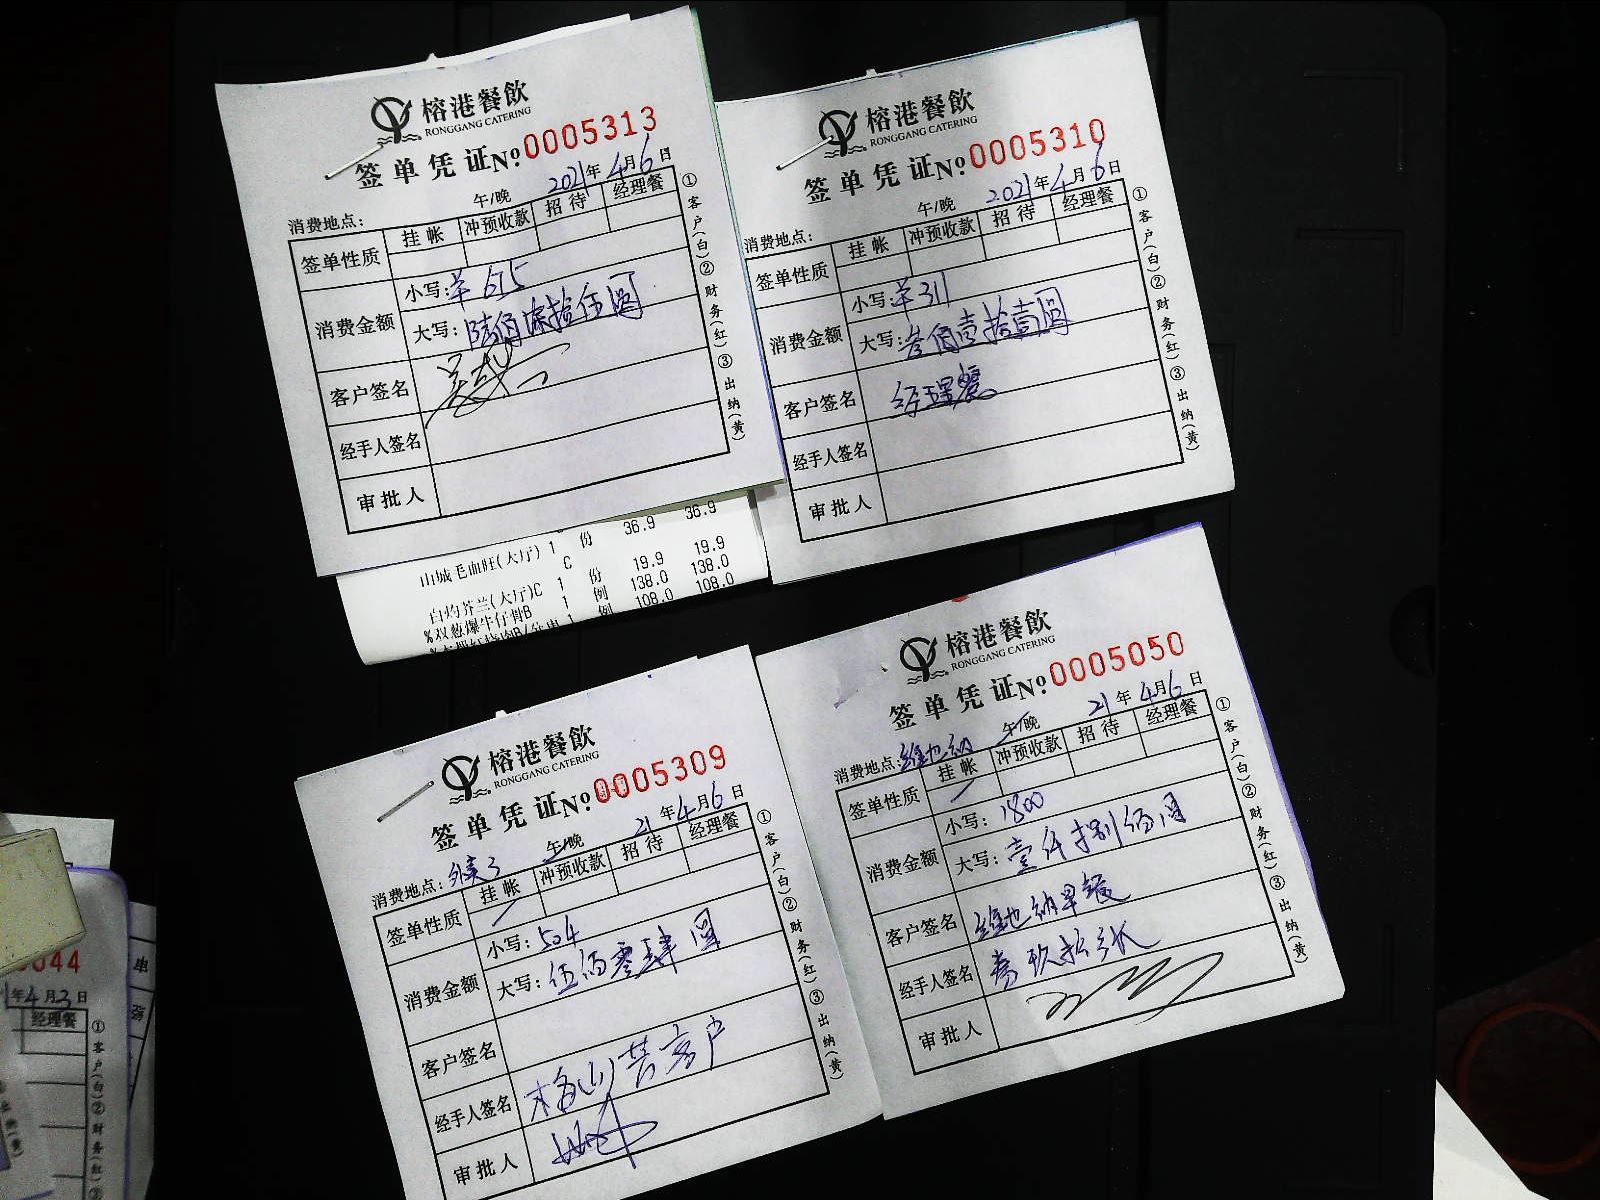 榕港餐飲
RONGGANG CATERING
签单凭证 No. 0005313
午/晚 2021年4月6日
消费地点:
签单性质 挂帐 冲预收款 招待 经理餐
消费金额 小写: 615
大写: 陆佰 拾伍圆
客户签名
经手人签名
审批人
①客户(白)②财务(红)③出纳(黄)
山城毛血旺(大厅) 1 份 36.9 36.9
C
白灼芥兰(大厅)C 1 份 19.9 19.9
%双葱爆牛仔骨B 1 例 138.0 138.0
1 例 108.0 108.0
榕港餐飲
RONGGANG CATERING
签单凭证 No. 0005310
午/晚 2021年4月6日
消费地点:
签单性质 挂帐 冲预收款 招待 经理餐
消费金额 小写: 311
大写: 叁佰壹拾壹圆
客户签名 经理餐
经手人签名
审批人
①客户(白)②财务(红)③出纳(黄)
榕港餐飲
RONGGANG CATERING
签单凭证 No. 0005309
午/晚 21年4月6日
消费地点:
签单性质 挂帐 冲预收款 招待 经理餐
消费金额 小写: 504
大写: 伍佰零肆圆
客户签名
经手人签名 梅山 客户
审批人
①客户(白)②财务(红)③出纳(黄)
榕港餐飲
RONGGANG CATERING
签单凭证 No. 0005050
午/晚 21年4月6日
消费地点: 维也纳
签单性质 挂帐 冲预收款 招待 经理餐
消费金额 小写: 1800
大写: 壹仟捌佰圆
客户签名 维也纳早餐
经手人签名
审批人
①客户(白)②财务(红)③出纳(黄)
044
年4月3日
经理餐
①客户(白)②